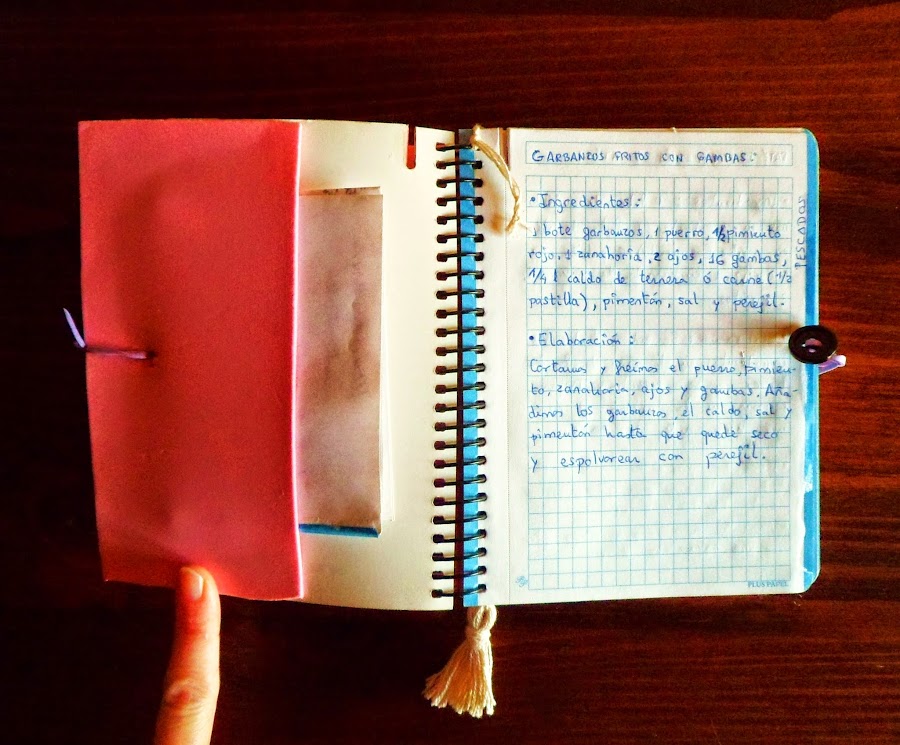 GARBANZOS FRITOS CON GAMBAS:
• Ingredientes:
1 bote garbanzos, 1 puerro, 1/2 pimiento
rojo, 1 zanahoria, 2 ajos, 16 gambas,
1/4 l caldo de ternera ó carne (1/2
pastilla), pimentón, sal y perejil.
• Elaboración:
Cortamos y freímos el puerro, pimien-
to, zanahoria, ajos y gambas. Aña
dimos los garbanzos, el caldo, sal y
pimentón hasta que quede seco
y espolvorear con perejil.
PESCADOS
PLUS PAPEL